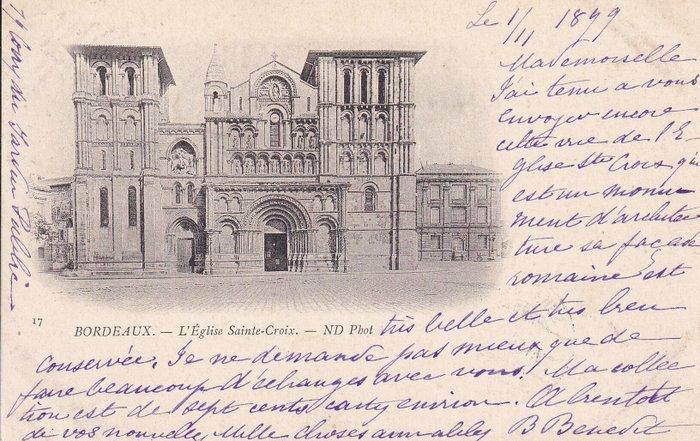 Le 1/11 1899
Mademoiselle
J'ai tenu a vous
envoyer encore
cette vue de l'E
glise Ste Croix qui
est un monu
ment d'architec
ture sa façade
romaine est
très belle et très bien
conservée. Je ne demande pas mieux que de
faire beaucoup d'échanges avec vous. Ma collec
tion est de sept cents cartes environ. A bientôt
de vos nouvelles Mille choses aimables B Benedit
17
BORDEAUX. — L'Église Sainte-Croix. — ND Phot
du Jardin Public